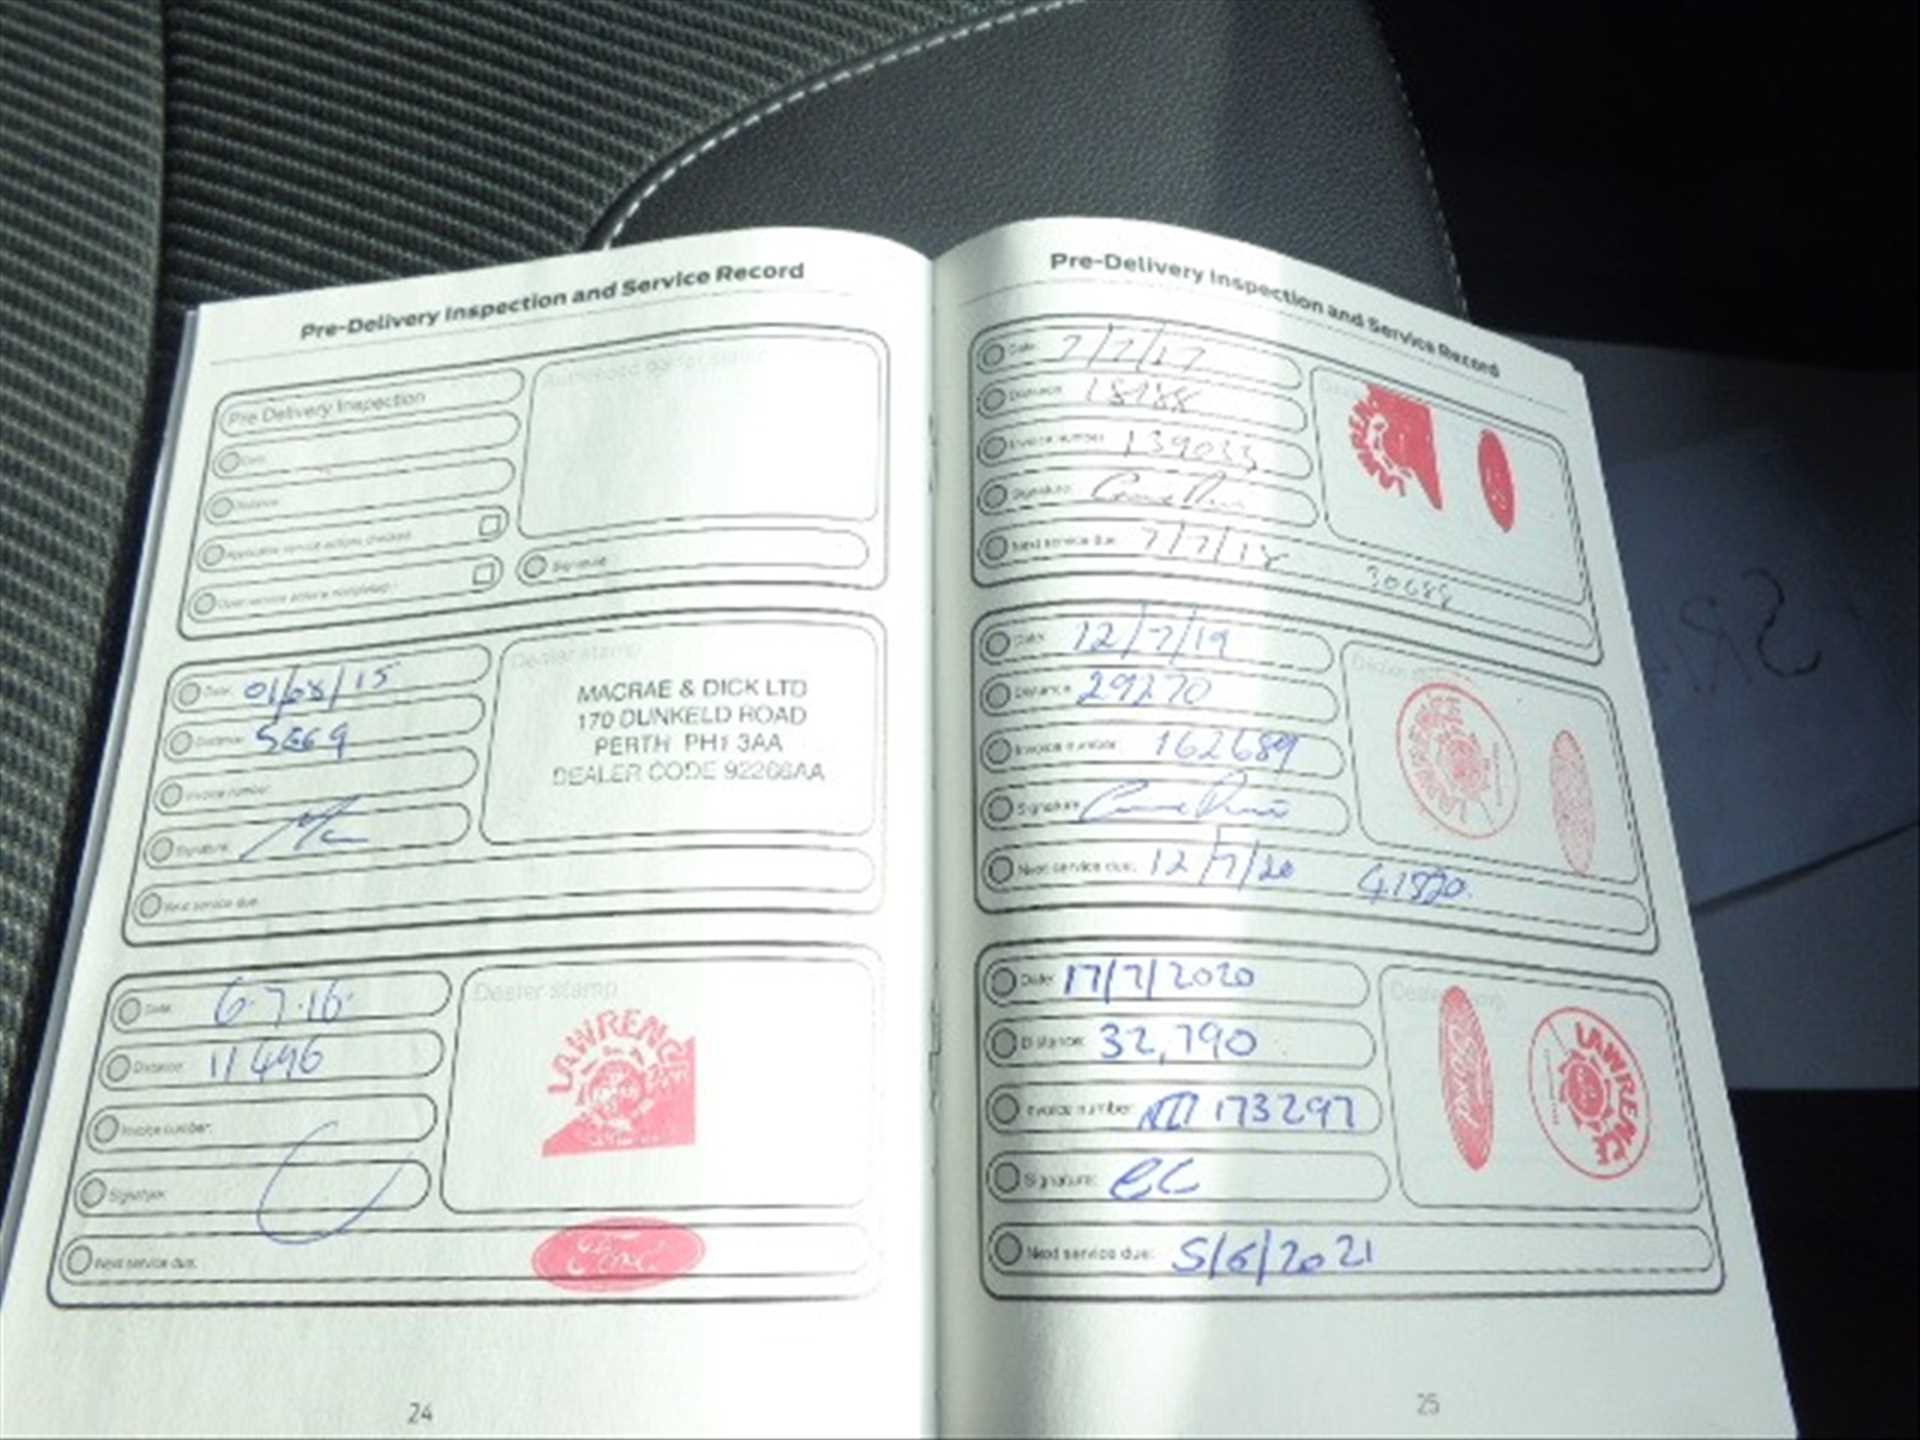 Pre-Delivery Inspection and Service Record
Pre Delivery Inspection
Authorised dealer stamp
Date:
Distance:
Applicable service actions checked
Signature:
Date: 01/08/15
Distance:
Invoice number:
Signature:
Next service due:
Dealer stamp
MACRAE & DICK LTD
170 DUNKELD ROAD
PERTH PH1 3AA
DEALER CODE 92266AA
Date: 6.7.16.
Distance: 11496
Invoice number:
Signature:
Next service due:
Dealer stamp
LAWRENCE
Ford
24
Pre-Delivery Inspection and Service Record
Date: 7/7/17
Distance:
Invoice number: 139033
Signature:
Next service due: 7/7/18 30688
Date: 12/7/19
Distance: 29270
Invoice number: 162689
Signature:
Next service due: 12/7/20
Dealer stamp
LAWRENCE
Date: 17/7/2020
Distance: 32,790
Invoice number: 173297
Signature: CC
Next service due: 5/6/2021
Dealer stamp
Ford
LAWRENCE
25